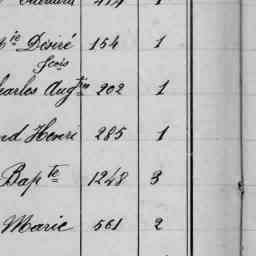 414 1
ie Désiré 154 1
fcois
harles Augtin 202 1
nd Henri 285 1
Bapte 1248 3
Marie 561 2